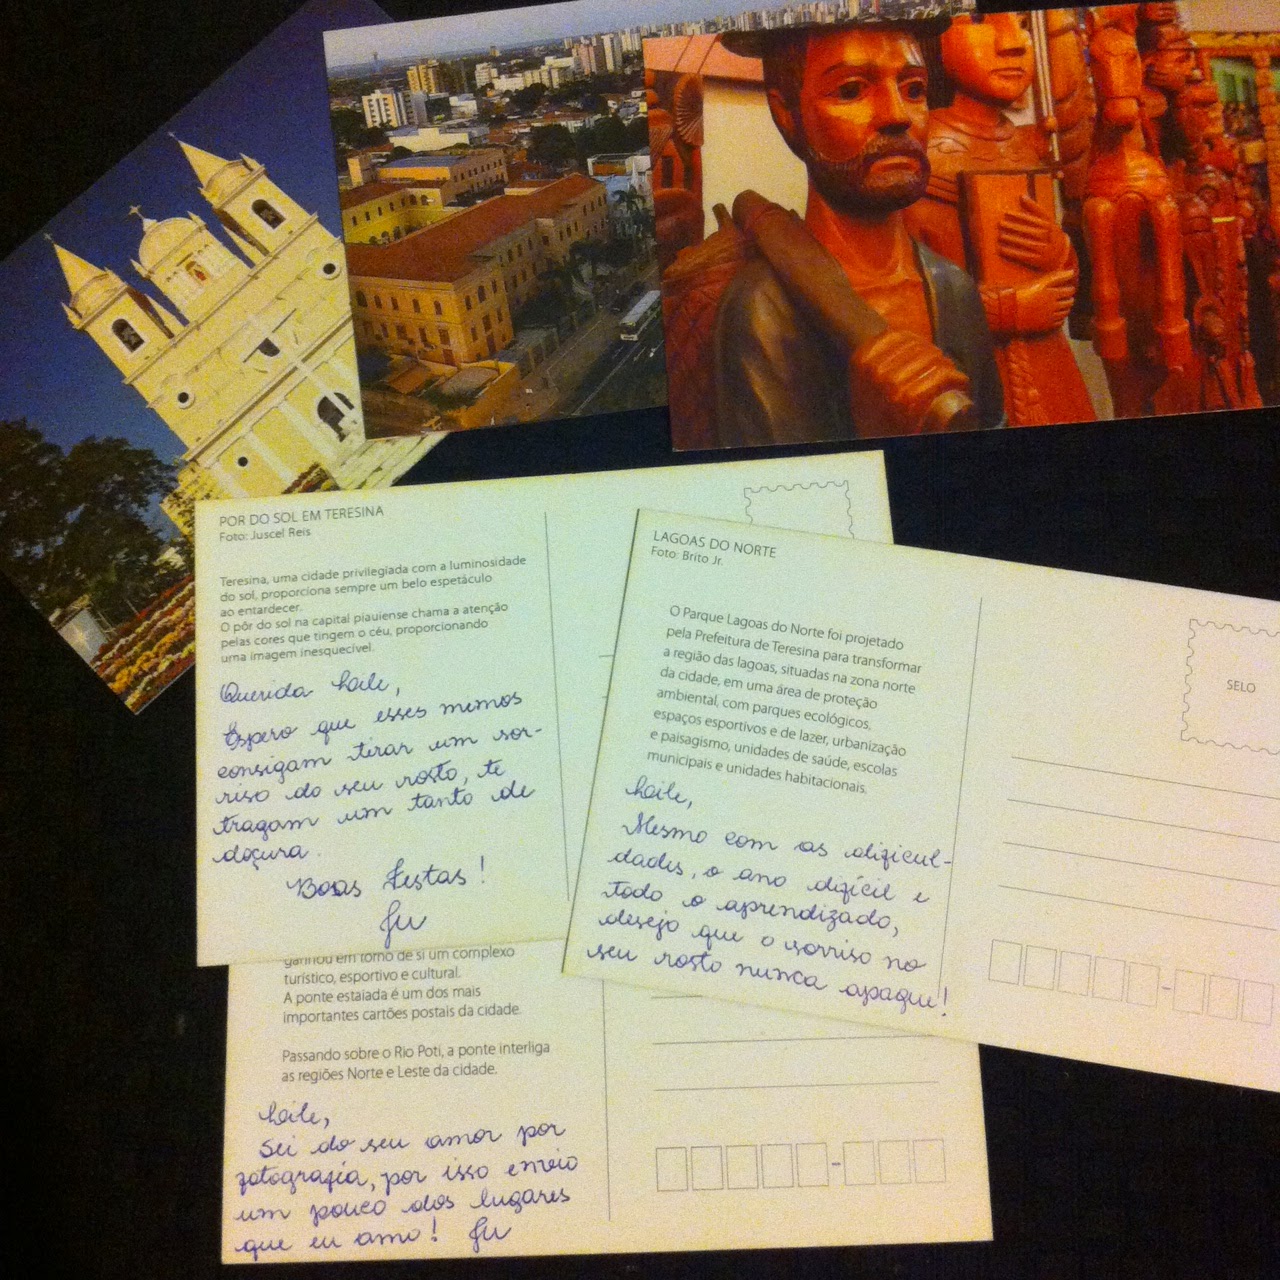 POR DO SOL EM TERESINA
Foto: Juscel Reis
Teresina, uma cidade privilegiada com a luminosidade
do sol, proporciona sempre um belo espetáculo
ao entardecer.
O pôr do sol na capital piauiense chama a atenção
pelas cores que tingem o céu, proporcionando
uma imagem inesquecível.
Querida Laile,
Espero que esses mimos
consigam tirar um sor-
riso do seu rosto, te
tragam um tanto de
doçura.
Boas Festas!
Ju
LAGOAS DO NORTE
Foto: Brito Jr.
O Parque Lagoas do Norte foi projetado
pela Prefeitura de Teresina para transformar
a região das lagoas, situadas na zona norte
da cidade, em uma área de proteção
ambiental, com parques ecológicos,
espaços esportivos e de lazer, urbanização
e paisagismo, unidades de saúde, escolas
municipais e unidades habitacionais.
Laile,
Mesmo com as dificul-
dades, o ano difícil e
todo o aprendizado,
desejo que o sorriso no
seu rosto nunca apague!
SELO
ganhou em torno de si um complexo
turístico, esportivo e cultural.
A ponte estaiada é um dos mais
importantes cartões postais da cidade.
Passando sobre o Rio Poti, a ponte interliga
as regiões Norte e Leste da cidade.
Laile,
Sei do seu amor por
fotografia, por isso envio
um pouco dos lugares
que eu amo! Ju